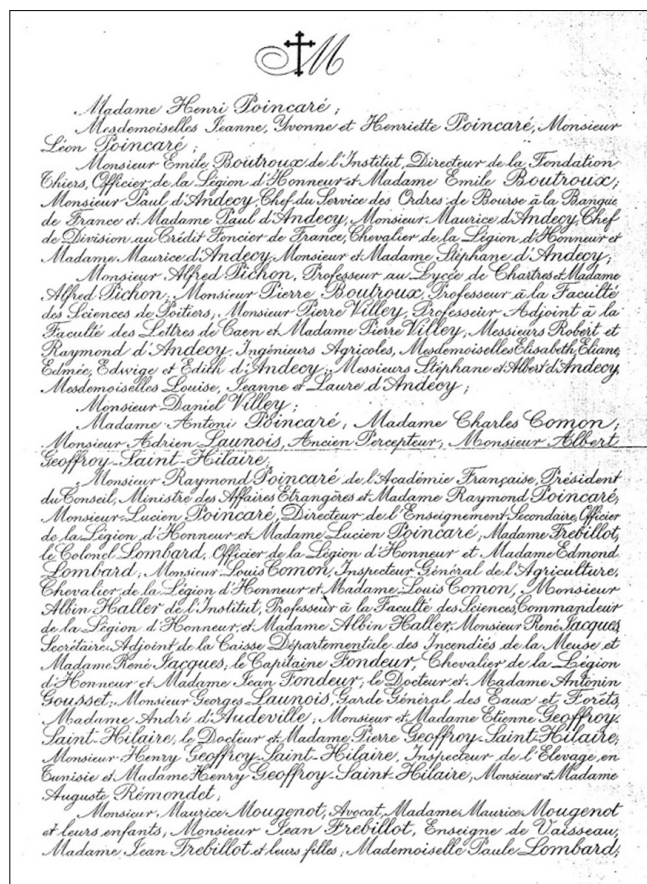 M
Madame Henri Poincaré;
Mesdemoiselles Jeanne, Yvonne et Henriette Poincaré, Monsieur
Léon Poincaré;
Monsieur Emile Boutroux de l'Institut, Directeur de la Fondation
Thiers, Officier de la Légion d'Honneur et Madame Emile Boutroux;
Monsieur Paul d'Andecy, Chef du Service des Ordres de Bourse à la Banque
de France et Madame Paul d'Andecy, Monsieur Maurice d'Andecy, Chef
de Division au Crédit Foncier de France, Chevalier de la Légion d'Honneur et
Madame Maurice d'Andecy, Monsieur et Madame Stéphane d'Andecy;
Monsieur Alfred Pichon, Professeur au Lycée de Chartres et Madame
Alfred Pichon, Monsieur Pierre Boutroux, Professeur à la Faculté
des Sciences de Poitiers, Monsieur Pierre Villey, Professeur Adjoint à la
Faculté des Lettres de Caen et Madame Pierre Villey, Messieurs Robert et
Raymond d'Andecy, Ingénieurs Agricoles, Mesdemoiselles Elisabeth, Eliane,
Edmée, Edwige et Edith d'Andecy, Messieurs Stéphane et Albert d'Andecy,
Mesdemoiselles Louise, Jeanne et Laure d'Andecy;
Monsieur Daniel Villey;
Madame Antoni Poincaré, Madame Charles Comon,
Monsieur Adrien Launois, Ancien Percepteur, Monsieur Albert
Geoffroy-Saint-Hilaire;
Monsieur Raymond Poincaré de l'Académie Française, Président
du Conseil, Ministre des Affaires Etrangères et Madame Raymond Poincaré,
Monsieur Lucien Poincaré, Directeur de l'Enseignement Secondaire, Officier
de la Légion d'Honneur et Madame Lucien Poincaré, Madame Trébillot,
le Colonel Lombard, Officier de la Légion d'Honneur et Madame Edmond
Lombard, Monsieur Louis Comon, Inspecteur Général de l'Agriculture,
Chevalier de la Légion d'Honneur et Madame Louis Comon, Monsieur
Albin Haller de l'Institut, Professeur à la Faculté des Sciences, Commandeur
de la Légion d'Honneur, et Madame Albin Haller, Monsieur René Jacques,
Secrétaire Adjoint de la Caisse Départementale des Incendiés de la Meuse et
Madame René Jacques, le Capitaine Fondeur, Chevalier de la Légion
d'Honneur et Madame Jean Fondeur, le Docteur et Madame Antonin
Gousset, Monsieur Georges Launois, Garde Général des Eaux et Forêts,
Madame André d'Audeville, Monsieur et Madame Etienne Geoffroy-
Saint-Hilaire, le Docteur et Madame Pierre Geoffroy-Saint-Hilaire,
Monsieur Henry Geoffroy-Saint-Hilaire, Inspecteur de l'Elevage en
Tunisie et Madame Henry Geoffroy-Saint-Hilaire, Monsieur et Madame
Auguste Rémondet;
Monsieur Maurice Mougenot, Avocat, Madame Maurice Mougenot
et leurs enfants, Monsieur Jean Trébillot, Enseigne de Vaisseau,
Madame Jean Trébillot et leurs filles, Mademoiselle Paule Lombard,